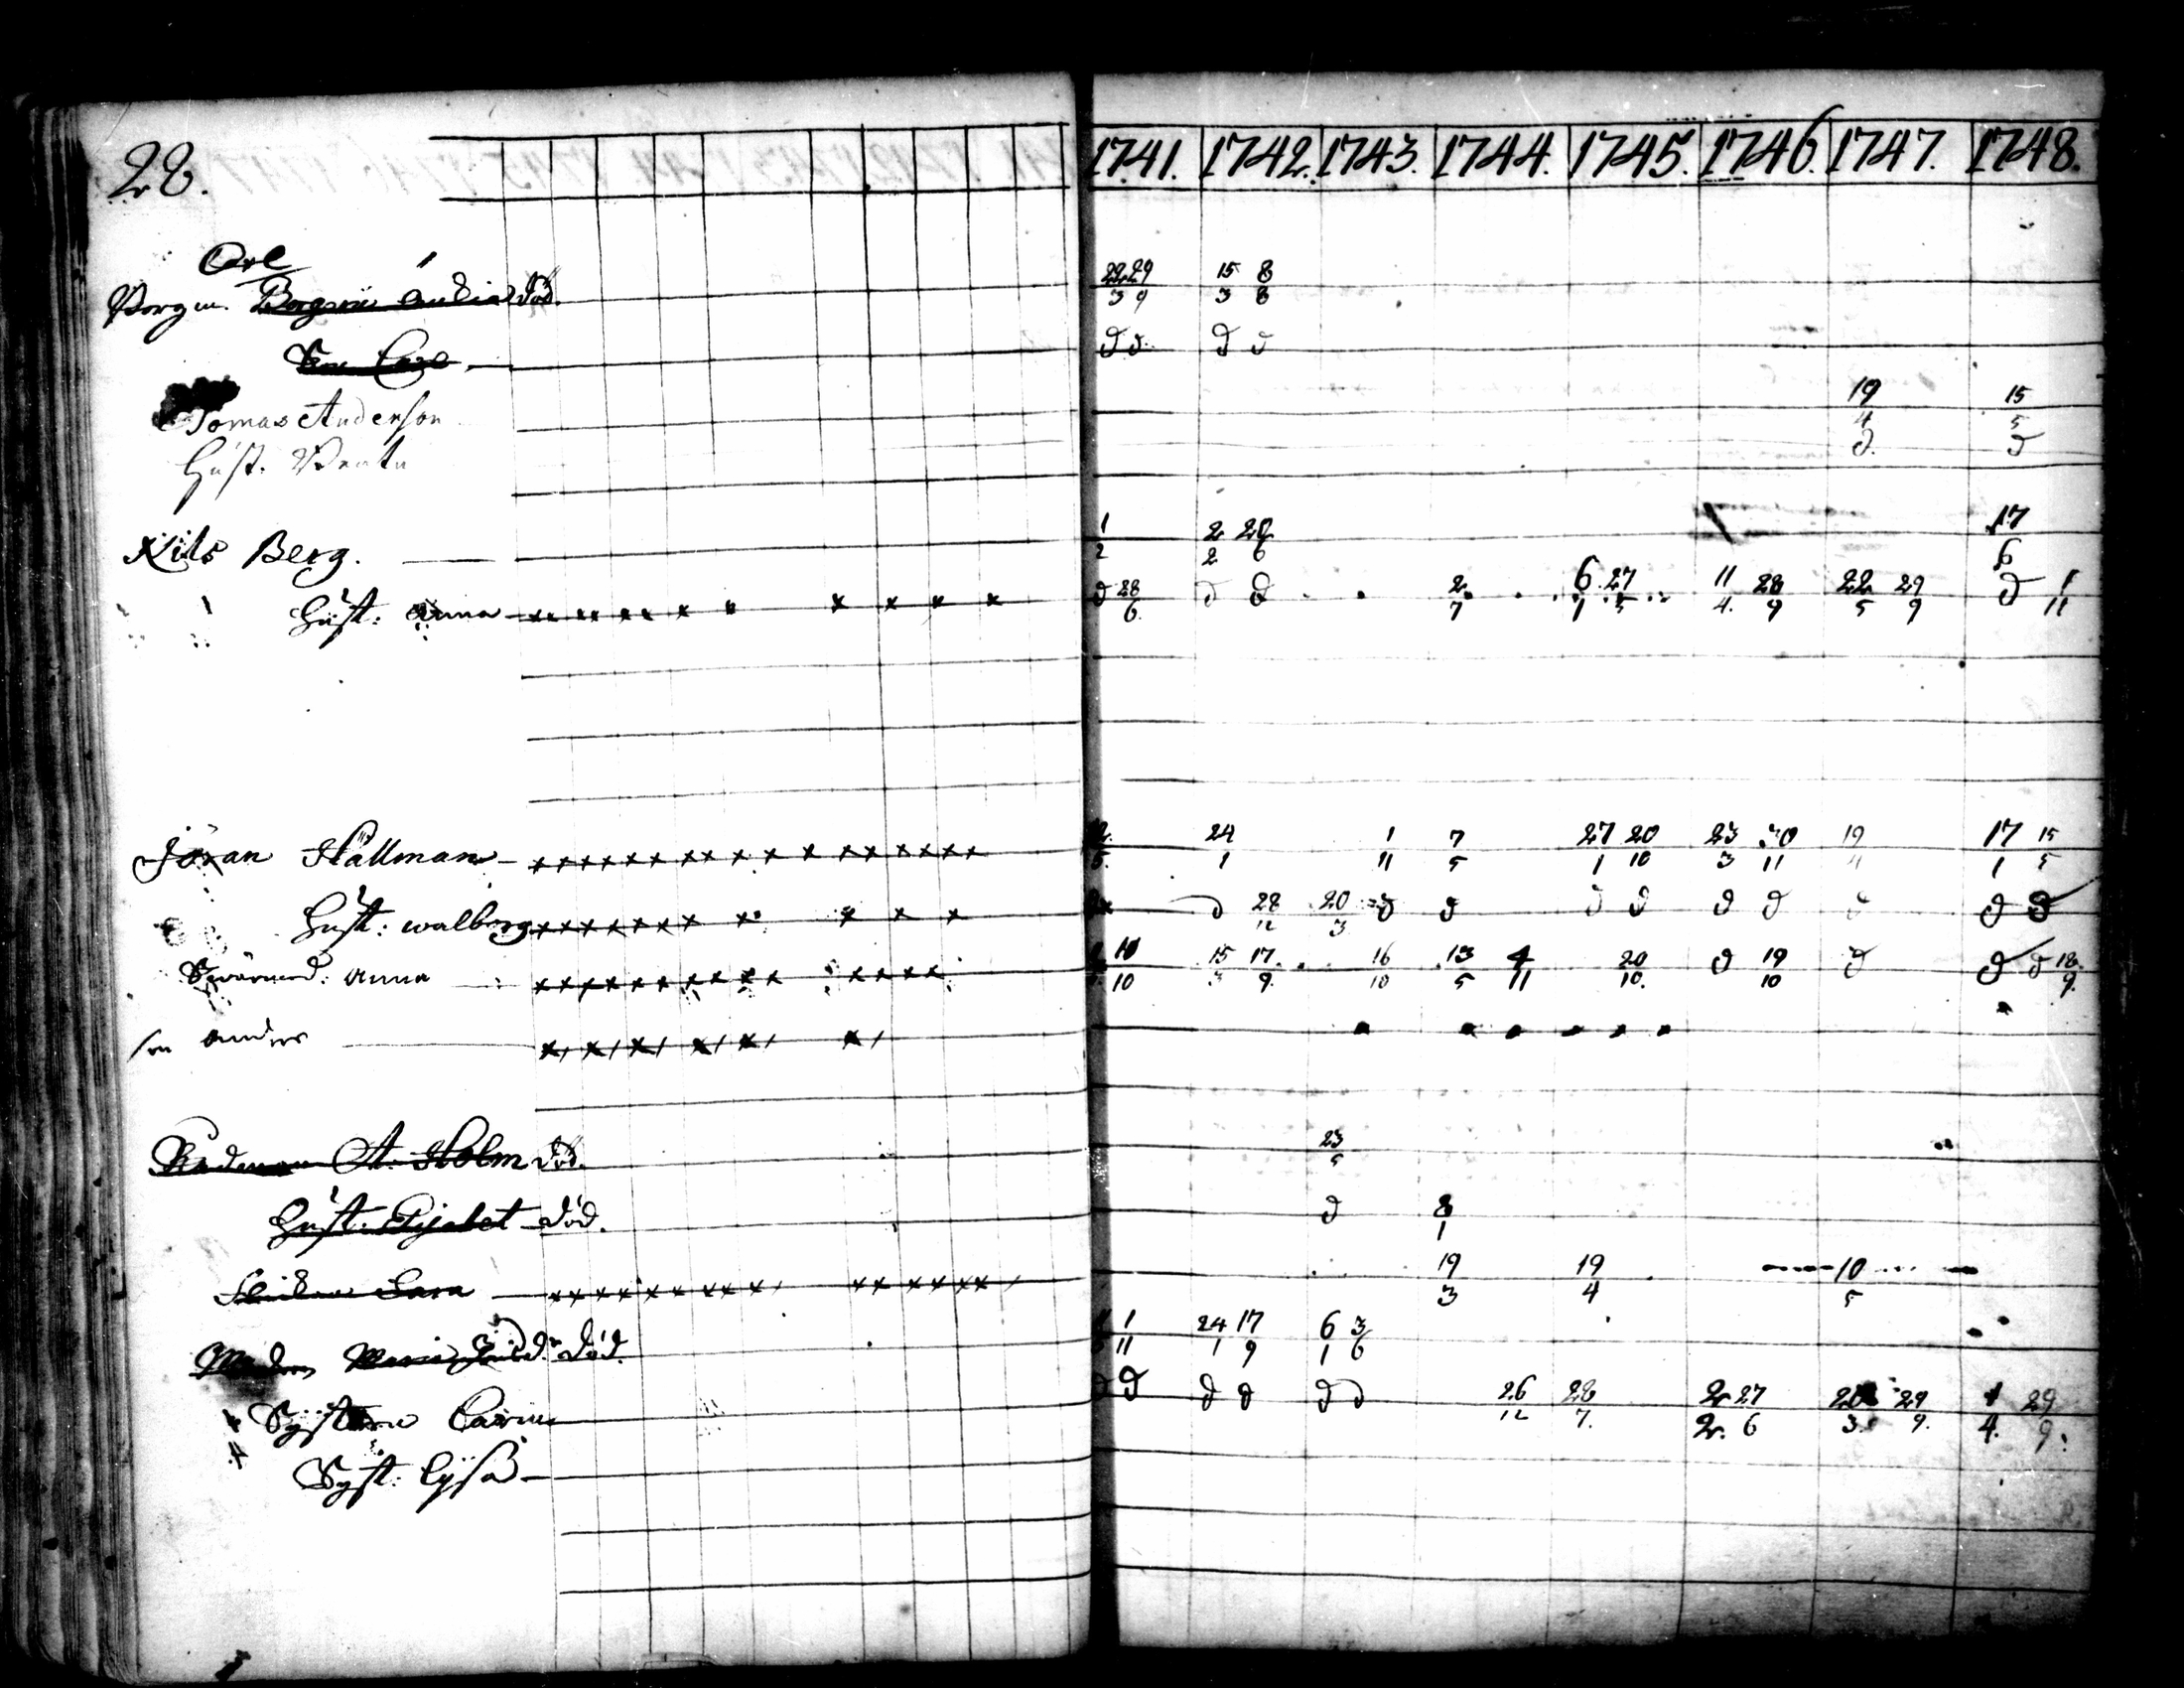 28. 1741. 1742. 1743. 1744. 1745. 1746. 1747. 1748.
Carl
Borgm. död. 22 29 15 8
3 9 3 8
Son Carl d d d d
Tomas Anderson 19 15
4 5
Hust. Beata d d
Nils Berg. 1 2 17
2 2 6 6
Hust: Anna x x x x x x x x x x d 28 d d 2 6 27 11 28 22 29 d 1
6 7 1 5 4 9 5 9 11
Jöran Hállman 24 1 7 27 20 23 30 19 17 15
5 1 11 5 1 10 3 11 4 1 5
Hust: walborg d 28 20 d d d d d d d d d
12 3
Swärmod: Anna 10 15 17 16 13 4 20 d 19 d d d 18
10 3 9 10 5 11 10 10 9
son Anders
Rådman A. Holm död. 23
5
Hust. Lijsabet död. d 8
1
Sara 19 19 10
3 4 5
Maria död. 1 24 17 6 3
11 1 9 1 6
Systern Carin d d d d d d 26 28 2 27 29 1 29
12 7 2 6 3 9 4 9
Syst: Lijsa